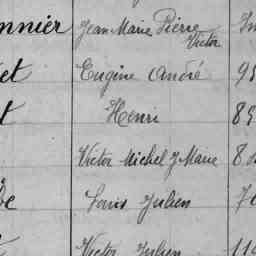 onnier Jean Marie Pierre Victor In
et Eugène André 95
t Henri 89
Victor Michel J Marie 8
be Louis Julien 70
Victor Julien 110